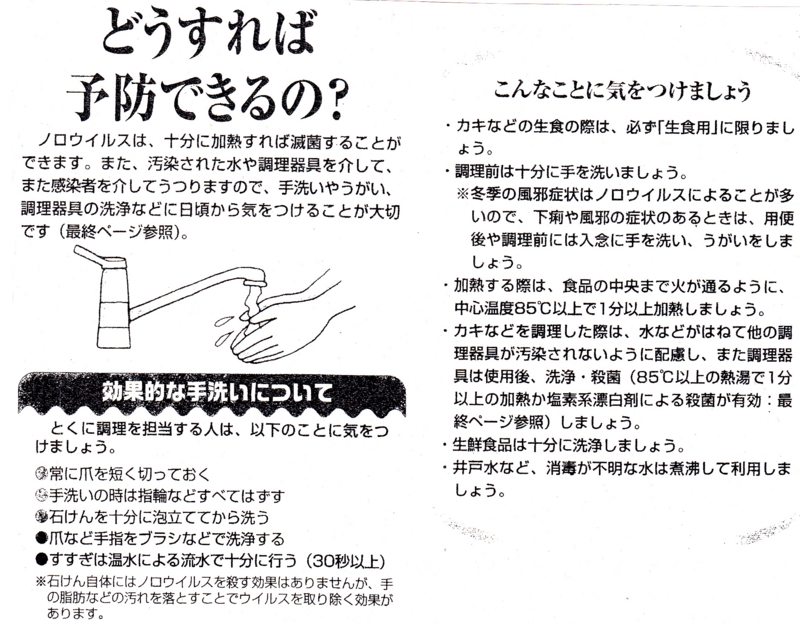 どうすれば
予防できるの?
ノロウイルスは、十分に加熱すれば滅菌することが
できます。また、汚染された水や調理器具を介して、
また感染者を介してうつりますので、手洗いやうがい、
調理器具の洗浄などに日頃から気をつけることが大切
です（最終ページ参照）。
効果的な手洗いについて
とくに調理を担当する人は、以下のことに気をつ
けましょう。
●常に爪を短く切っておく
●手洗いの時は指輪などすべてはずす
●石けんを十分に泡立ててから洗う
●爪など手指をブラシなどで洗浄する
●すすぎは温水による流水で十分に行う（30秒以上）
※石けん自体にはノロウイルスを殺す効果はありませんが、手
の脂肪などの汚れを落とすことでウイルスを取り除く効果が
あります。
こんなことに気をつけましょう
・カキなどの生食の際は、必ず「生食用」に限りまし
ょう。
・調理前は十分に手を洗いましょう。
※冬季の風邪症状はノロウイルスによることが多
いので、下痢や風邪の症状のあるときは、用便
後や調理前には入念に手を洗い、うがいをしま
しょう。
・加熱する際は、食品の中央まで火が通るように、
中心温度85℃以上で1分以上加熱しましょう。
・カキなどを調理した際は、水などがはねて他の調
理器具が汚染されないように配慮し、また調理器
具は使用後、洗浄・殺菌（85℃以上の熱湯で1分
以上の加熱か塩素系漂白剤による殺菌が有効：最
終ページ参照）しましょう。
・生鮮食品は十分に洗浄しましょう。
・井戸水など、消毒が不明な水は煮沸して利用しま
しょう。